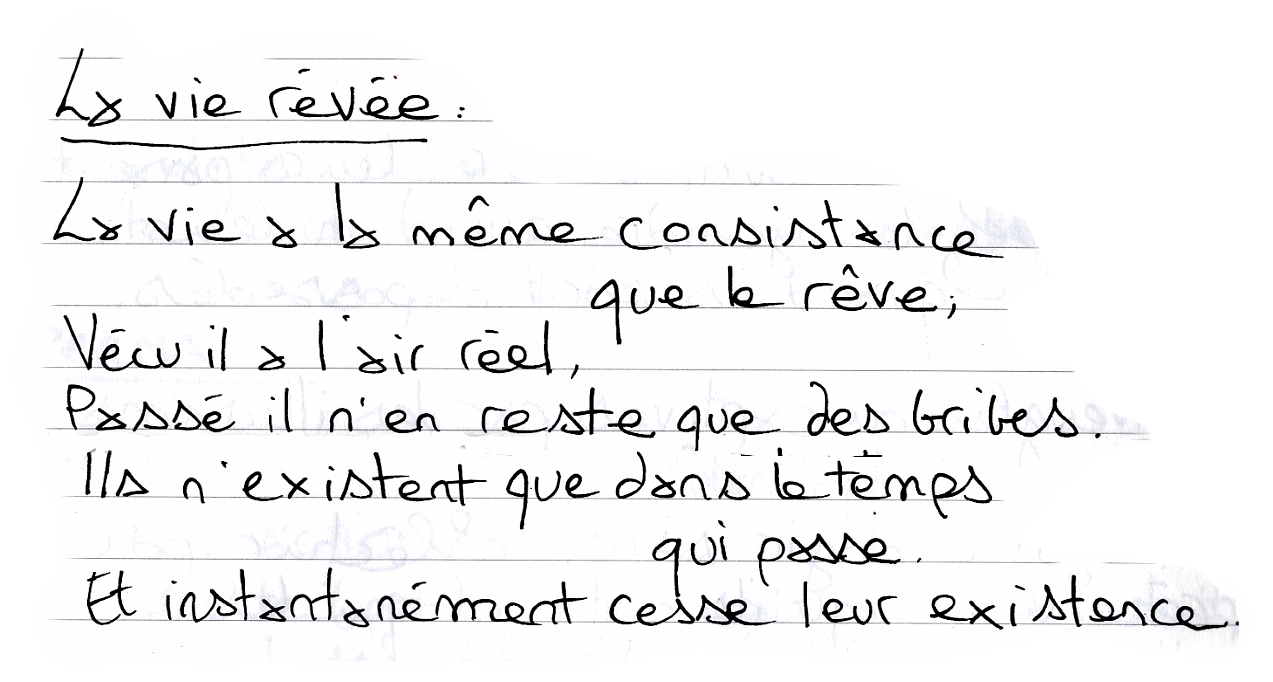 La vie rêvée :
La vie a la même consistance
que le rêve,
Vécu il a l'air réel,
Passé il n'en reste que des bribes.
Ils n'existent que dans le temps
qui passe.
Et instantanément cesse leur existence.